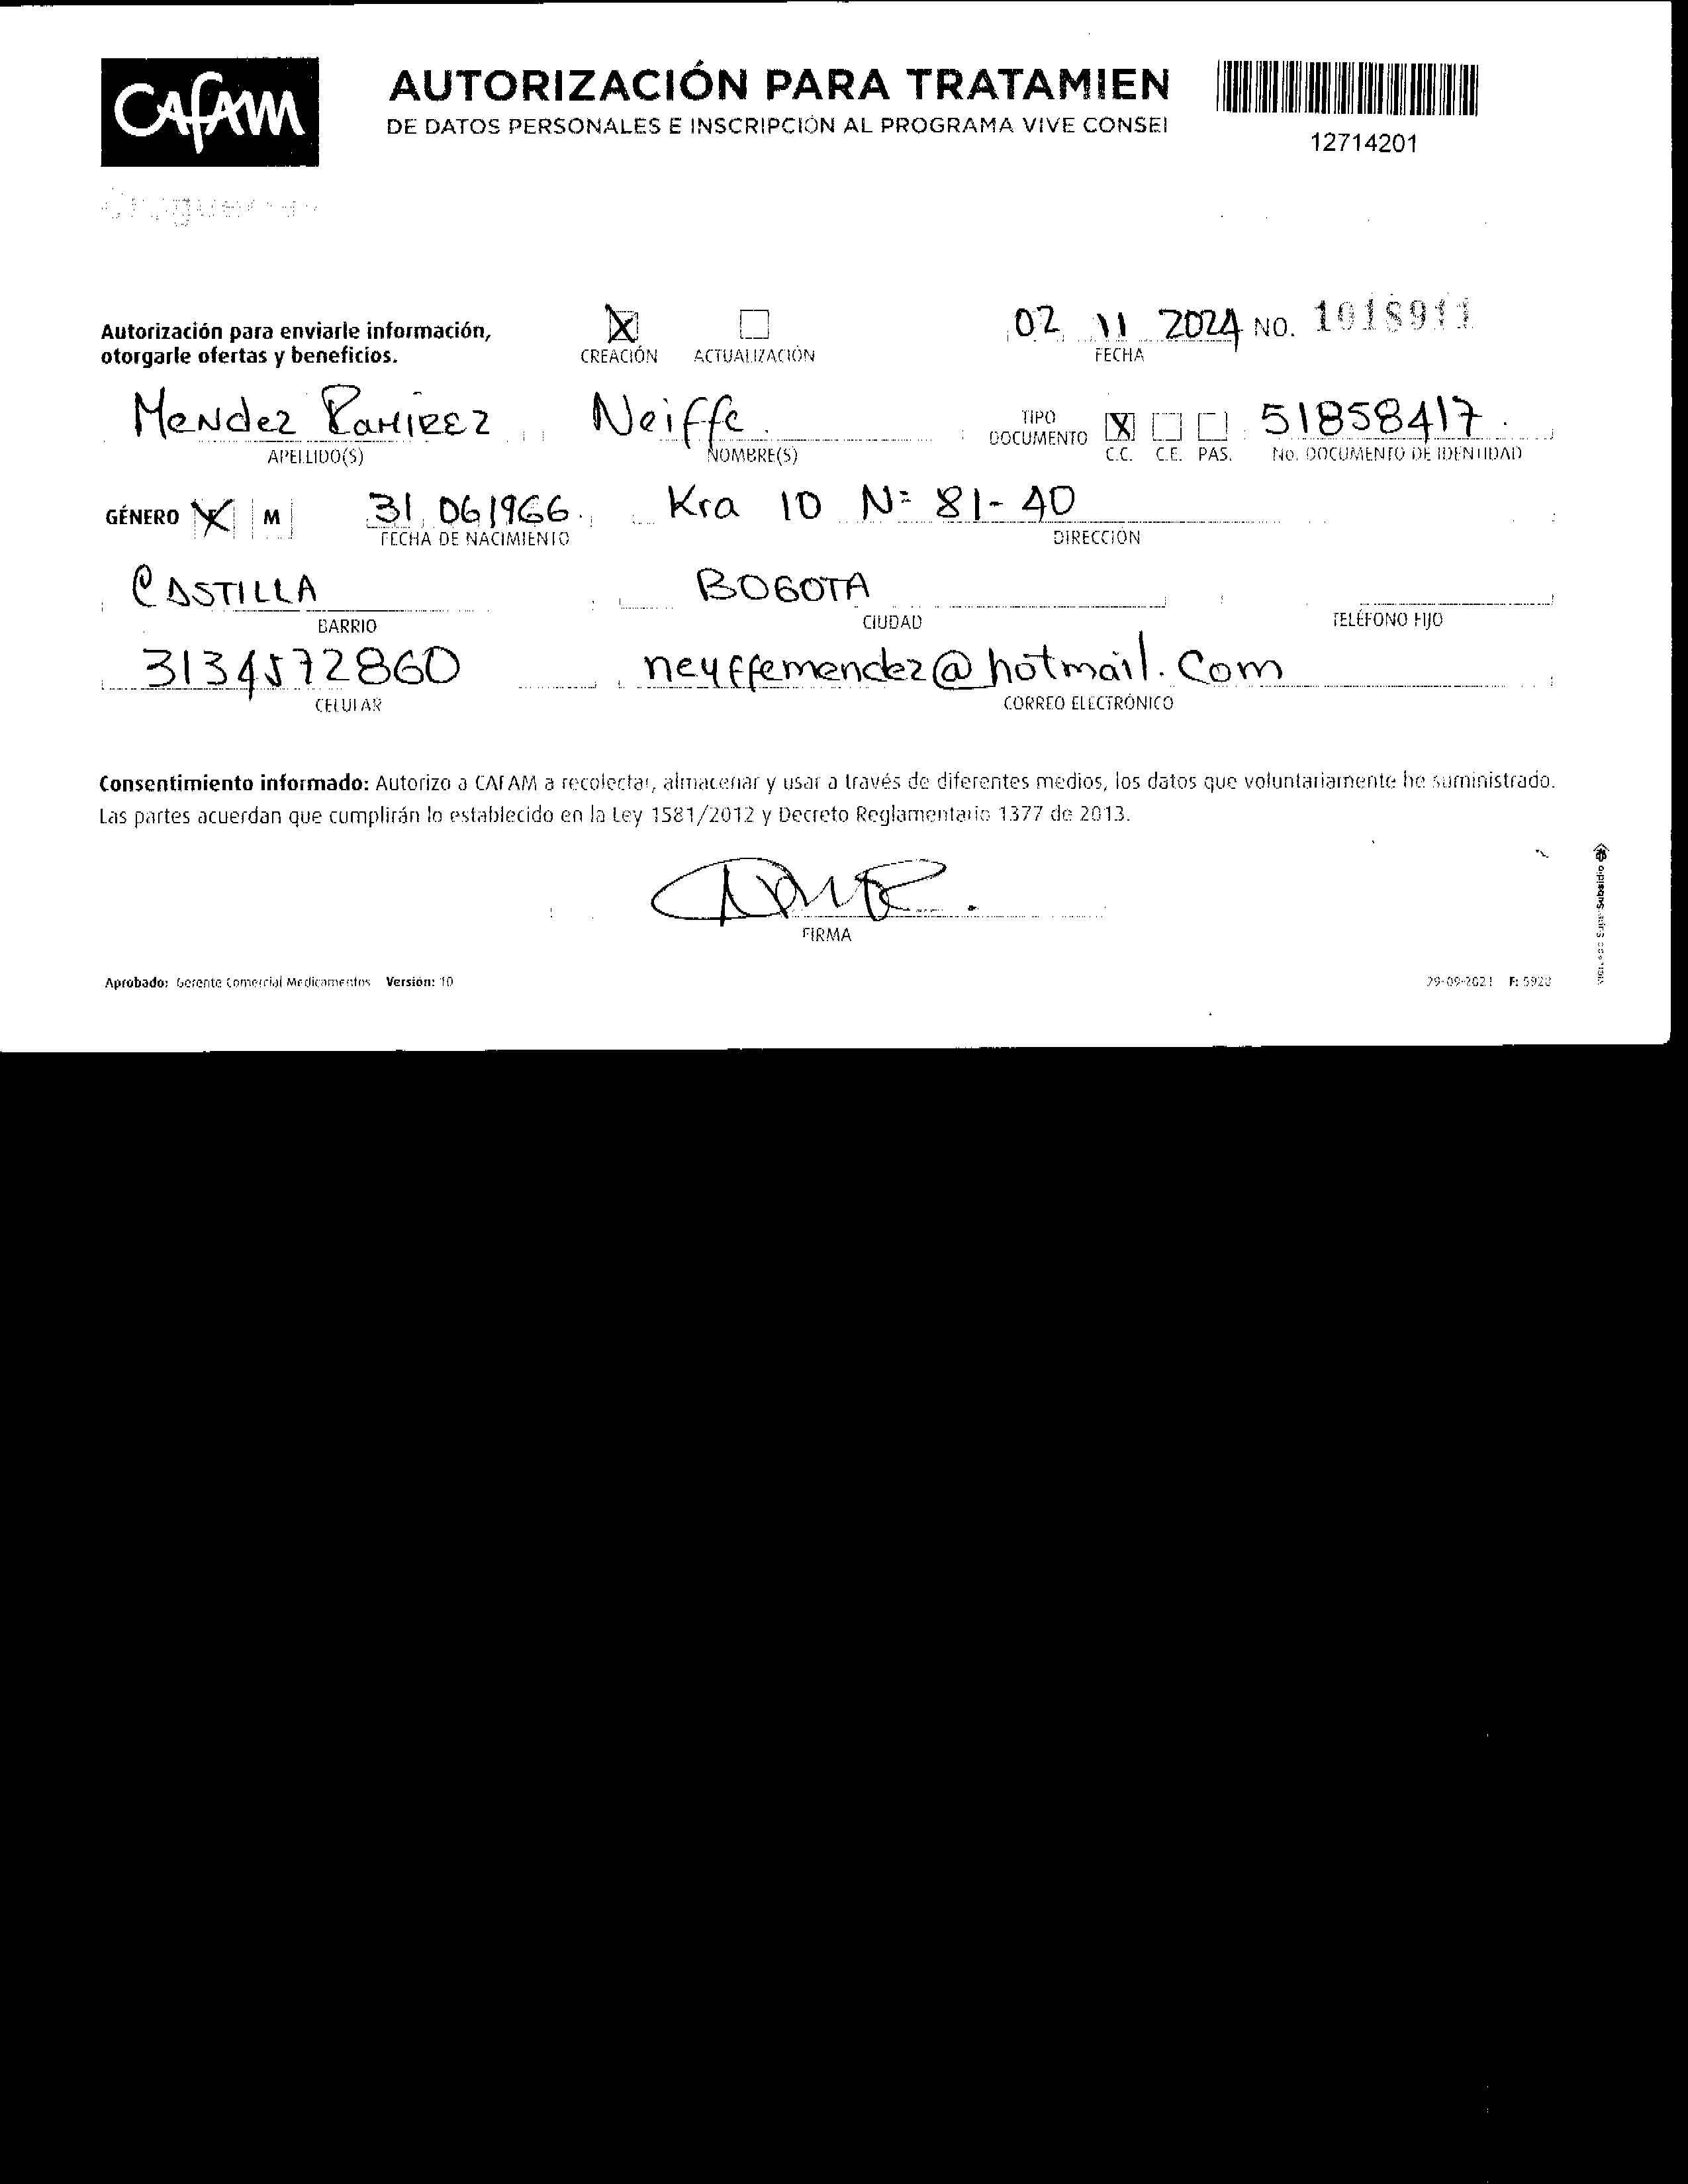 CAFAM
AUTORIZACIÓN PARA TRATAMIEN
DE DATOS PERSONALES E INSCRIPCIÓN AL PROGRAMA VIVE CONSEI
12714201
Autorización para enviarle información,
otorgarle ofertas y beneficios.
X CREACIÓN ACTUALIZACIÓN
02 11 2024 NO. 1018911
FECHA
Mendez Ramirez Neiffe. TIPO DOCUMENTO X 51858417.
APELLIDO(S) NOMBRE(S) C.C. C.E. PAS. No. DOCUMENTO DE IDENTIDAD
GÉNERO X M 31 06 1966. Kra 10 N= 81-40
FECHA DE NACIMIENTO DIRECCIÓN
CASTILLA BOGOTA
BARRIO CIUDAD TELÉFONO FIJO
3134572860 neyffemendez@hotmail.Com
CELULAR CORREO ELECTRÓNICO
Consentimiento informado: Autorizo a CAFAM a recolectar, almacenar y usar a través de diferentes medios, los datos que voluntariamente he suministrado.
Las partes acuerdan que cumplirán lo establecido en la Ley 1581/2012 y Decreto Reglamentario 1377 de 2013.
FIRMA
Aprobado: Gerente Comercial Medicamentos Versión: 10
29-09-2021 F: 5920